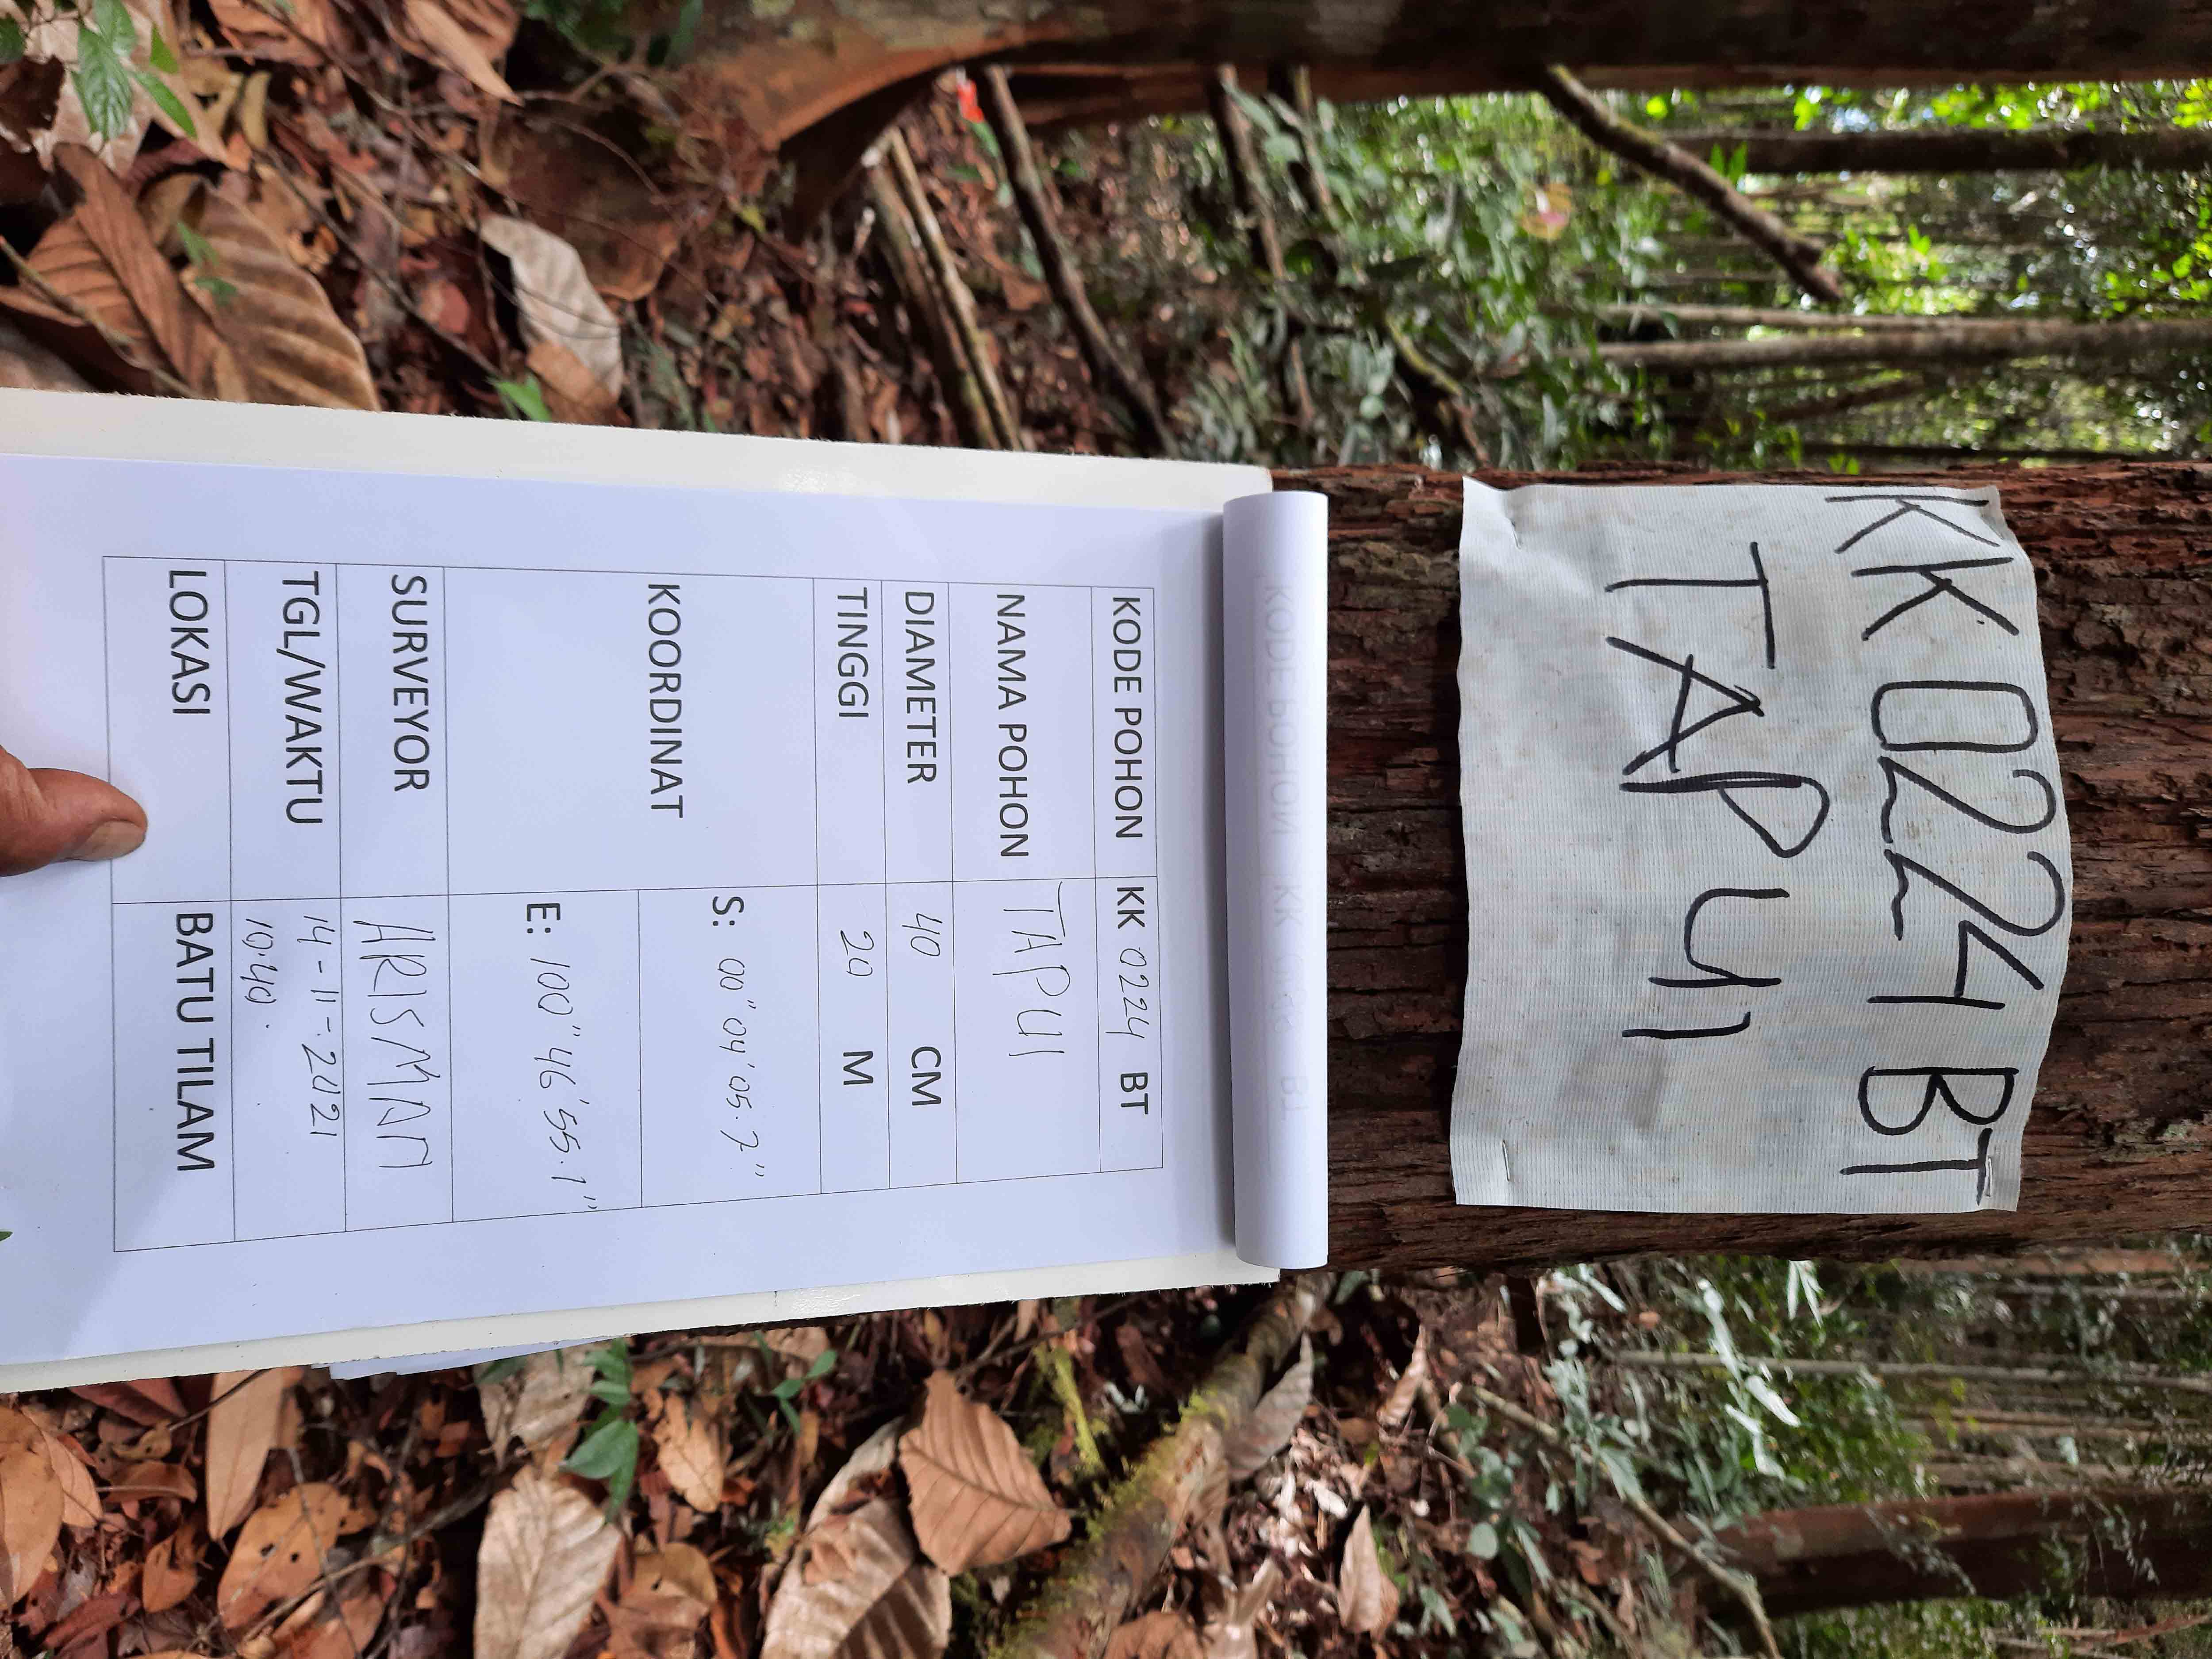 KK 0224 BT
TAPUI
KODE POHON KK 0224 BT
NAMA POHON TAPUI
DIAMETER 40 CM
TINGGI 20 M
KOORDINAT S: 00" 04' 05.7"
E: 100" 46' 55.1"
SURVEYOR ARISMAN
TGL/WAKTU 14-11-2021
10.40.
LOKASI BATU TILAM